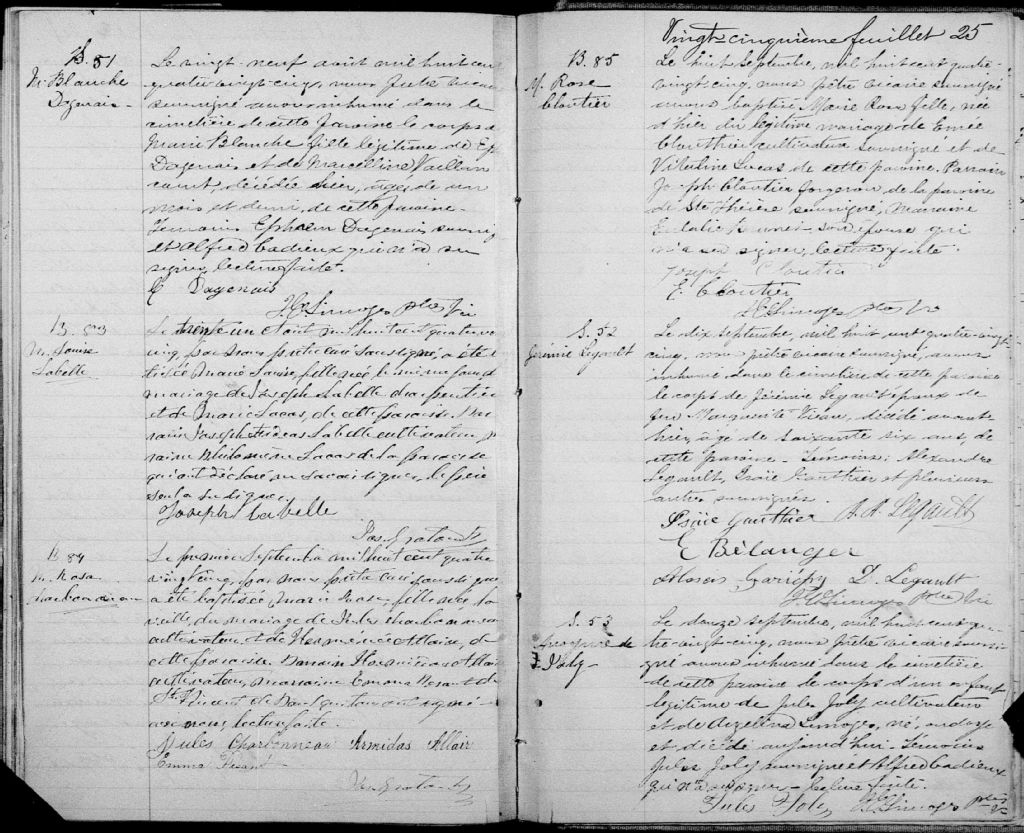 S. 51
M. Blanche
Dagenais
Le vingt-neuf août mil huit cent
quatre vingt cinq, nous prêtre vicaire
soussigné avons inhumé dans le
cimetière de cette paroisse le corps de
Marie Blanche fille légitime de Ep.
Dagenais et de Marcelline Vaillan
court, décédée hier, âgée de un
mois et demi, de cette paroisse.
Témoins Ephrem Dagenais soussigné
et Alfred Cadieux qui n'a su
signer, lecture faite.
E Dagenais
H. Limoges ptre Vic
B. 83
M. Louise
Labelle
Le trente un août mil huit cent quatre vingt
cinq, par nous prêtre curé soussigné, a été
Marie Louise, fille née le même jour du
mariage de Joseph Labelle
et de Marie Lucas, de cette paroisse.
Joseph Labelle cultivateur,
Philomène Lucas de la paroisse
qui ont déclaré ne savoir signer, le père
seul a su signer.
Joseph Labelle
B. 84
M. Rosa
Charbonneau
Le premier septembre mil huit cent quatre
vingt cinq, par nous prêtre curé soussigné
a été baptisée Marie Rose, fille née, la
veille, du mariage de Jules Charbonneau
cultivateur, et de Herménée Allaire, de
cette paroisse. Parrain Allaire
cultivateur, marraine Emma
St Vincent de Paul qui ont signé
avec nous, lecture faite.
Jules Charbonneau Armidas Allair
Emma
Vingt-cinquième feuillet 25
B. 85
M. Rose
Cloutier
Le huit septembre, mil huit cent quatre-
vingt-cinq, nous prêtre vicaire soussigné
avons baptisé Marie Rose fille, née
hier du légitime mariage de
Clouthier cultivateur soussigné et de
Lucas de cette paroisse. Parrain
Joseph Cloutier forgeron de la paroisse
de Ste Thérèse soussigné, marraine
son épouse qui
n'a su signer, lecture faite.
Joseph Cloutier
E. Cloutier
H. Limoges ptre Vic
S. 52
Jérémie Legault
Le dix septembre, mil huit cent quatre-vingt-
cinq, nous prêtre vicaire soussigné, avons
inhumé dans le cimetière de cette paroisse
le corps de Jérémie Legault époux de
feu Marguerite décédé avant
hier, âgé de soixante six ans, de
cette paroisse. Témoins: Alexandre
Legault, Gauthier et plusieurs
autres soussignés.
Gauthier A. A. Legault
E Bélanger
Gariépy D. Legault
H. Limoges ptre Vic
S. 53
Anonyme de
J. Joly
Le douze septembre, mil huit cent qua-
tre-vingt-cinq, nous prêtre vicaire soussi-
gné avons inhumé dans le cimetière
de cette paroisse le corps d'un enfant
légitime de Jules Joly cultivateur
et de Azellina Limoges, né, ondoyé
et décédé aujourd'hui. Témoins
Jules Joly soussigné et Alfred Cadieux
qui n'a su signer lecture faite.
Jules Joly H. Limoges ptre Vic